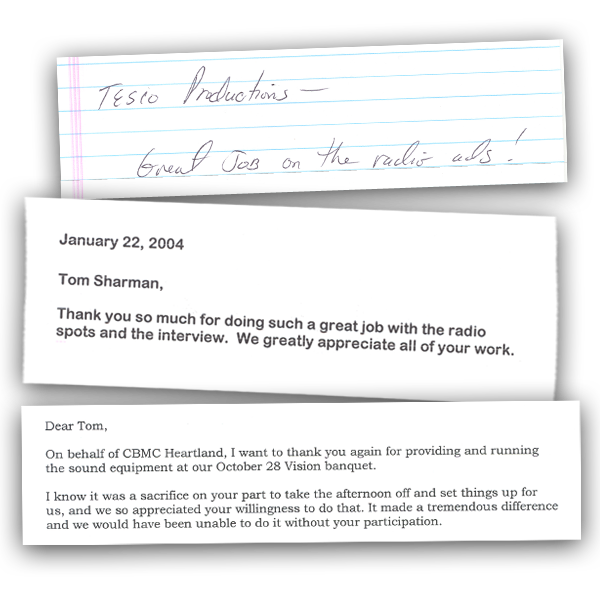 TESCO Productions —
Great Job on the radio ads!
January 22, 2004
Tom Sharman,
Thank you so much for doing such a great job with the radio
spots and the interview.  We greatly appreciate all of your work.
Dear Tom,
On behalf of CBMC Heartland, I want to thank you again for providing and running
the sound equipment at our October 28 Vision banquet.
I know it was a sacrifice on your part to take the afternoon off and set things up for
us, and we so appreciated your willingness to do that. It made a tremendous difference
and we would have been unable to do it without your participation.